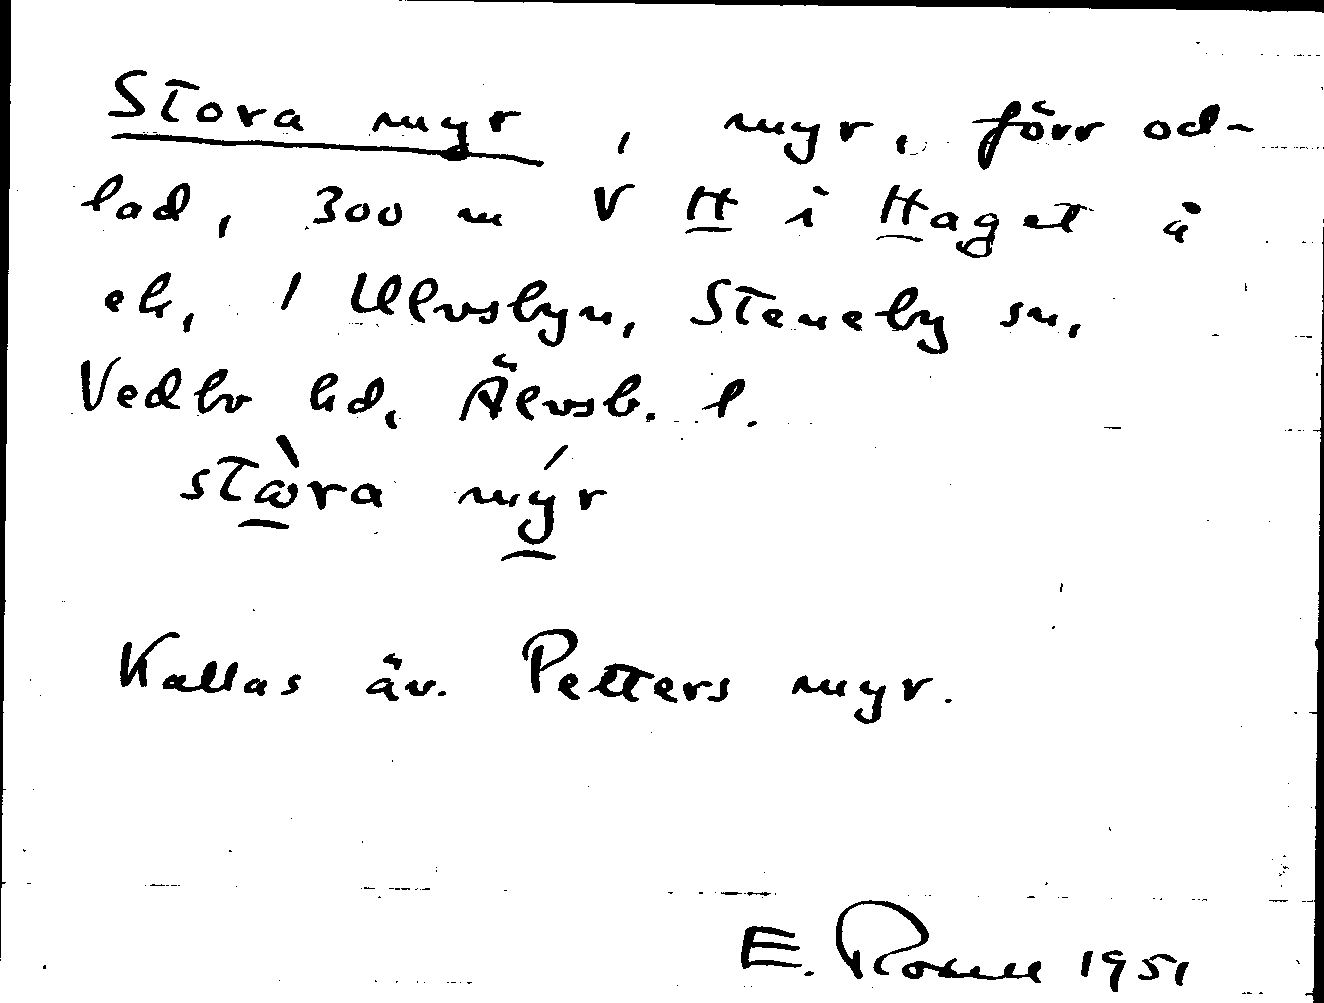 Stora myr, myr, förr od-
lad, 300 m V H i Haget å
ek, 1 Ulvsbyn, Steneby sn,
Vedbo hd, Älvsb. l.
stὼra mýr
Kallas äv. Petters myr.
E. Rosell 1951